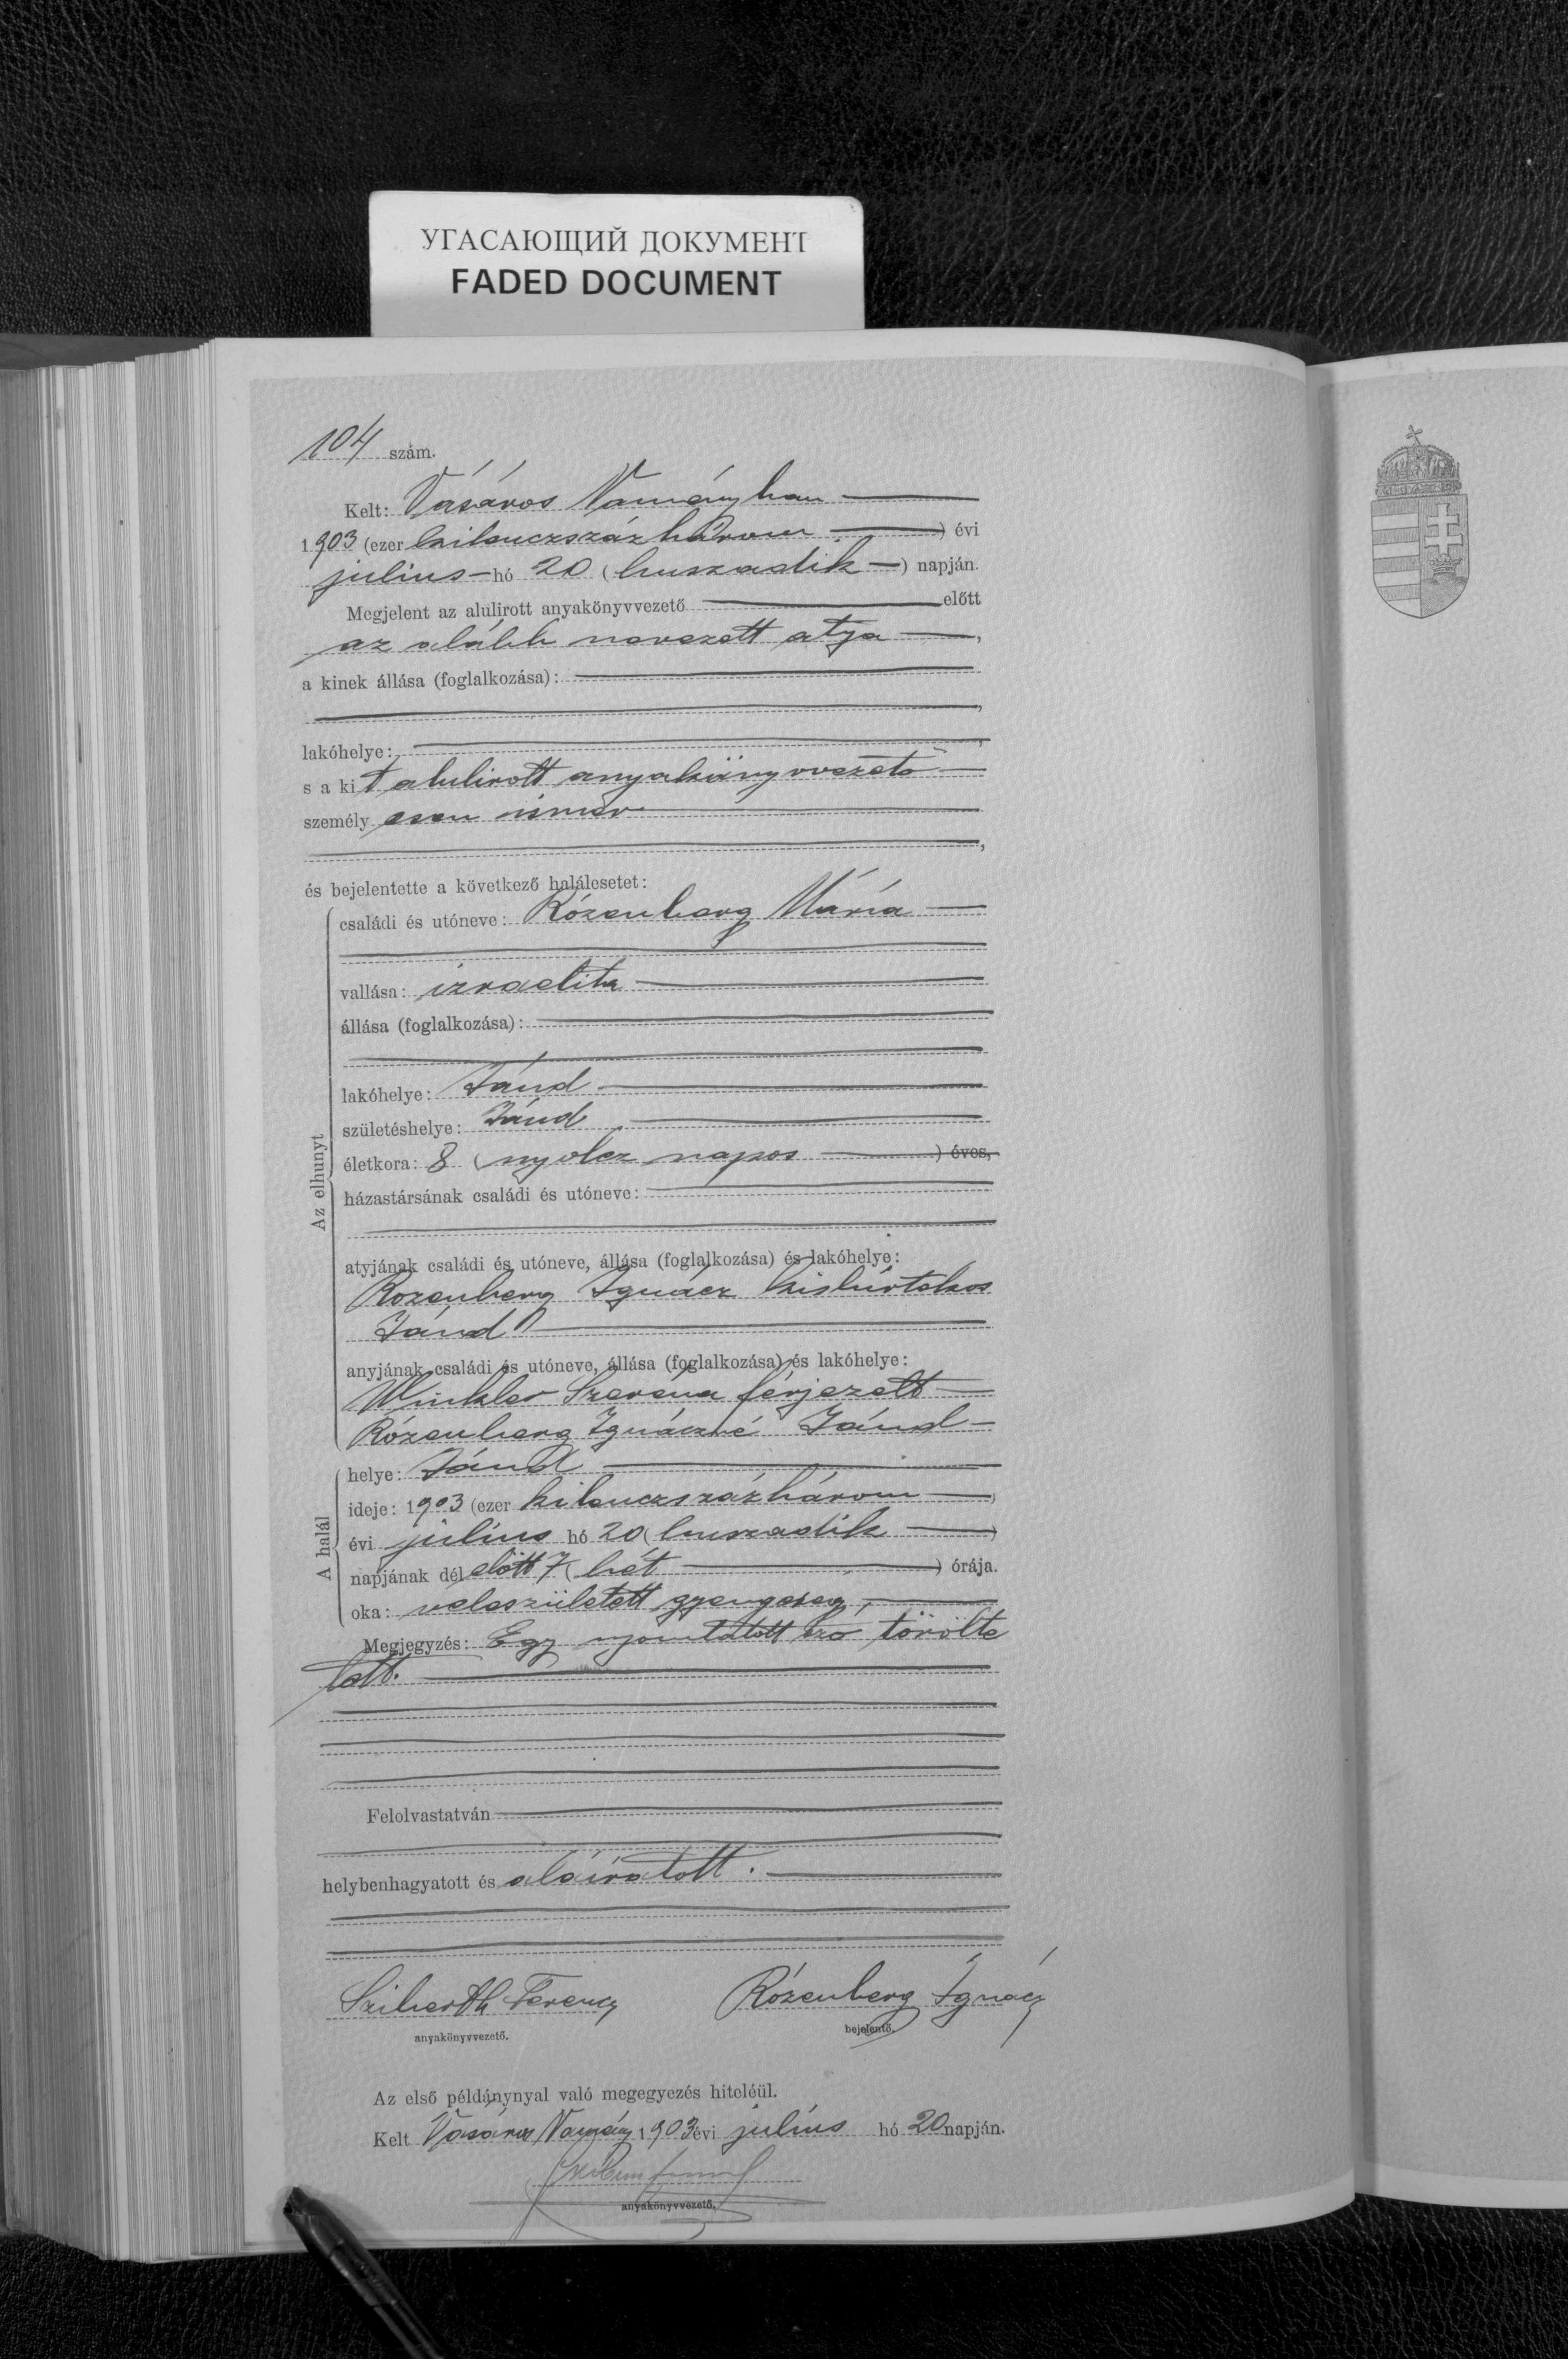 УГАСАЮЩИЙ ДОКУМЕНТ
FADED DOCUMENT
104 szám.
Kelt: Vásáros Naményban
1903 (ezer kilenczszázhárom ) évi
julius hó 20 (huszadik ) napján.
Megjelent az alulirott anyakönyvvezető előtt
az alább nevezett atya ,
a kinek állása (foglalkozása):
,
lakóhelye: ,
s a kit alulirott anyakönyvvezető
személyesen ismer
,
és bejelentette a következő halálesetet:
családi és utóneve: Rózenberg Mária
vallása: izraelita
állása (foglalkozása):
lakóhelye: Jánd
születéshelye: Jánd
életkora: 8 (nyolcz napos ) éves,
Az elhunyt
házastársának családi és utóneve:
atyjának családi és utóneve, állása (foglalkozása) és lakóhelye:
Rozenberg Ignácz kisbirtokos
Jánd
anyjának családi és utóneve, állása (foglalkozása) és lakóhelye:
Winkler Szeréna férjezett
Rózenberg Ignáczné Jánd
helye: Jánd
ideje: 1903 (ezer kilenczszázhárom )
A halál
évi július hó 20 (huszadik )
napjának délelőtt 7 (hét ) órája.
oka: veleszületett gyengeség,
Megjegyzés: Egy nyomtatott szó törölte
tett.
Felolvastatván
helybenhagyatott és aláiratott.
Sziberth Ferencz Rózenberg Ignácz
anyakönyvvezető. bejelentő.
Az első példánynyal való megegyezés hiteléül.
Kelt Vásáros Namény 1903 évi július hó 20 napján.
anyakönyvvezető.